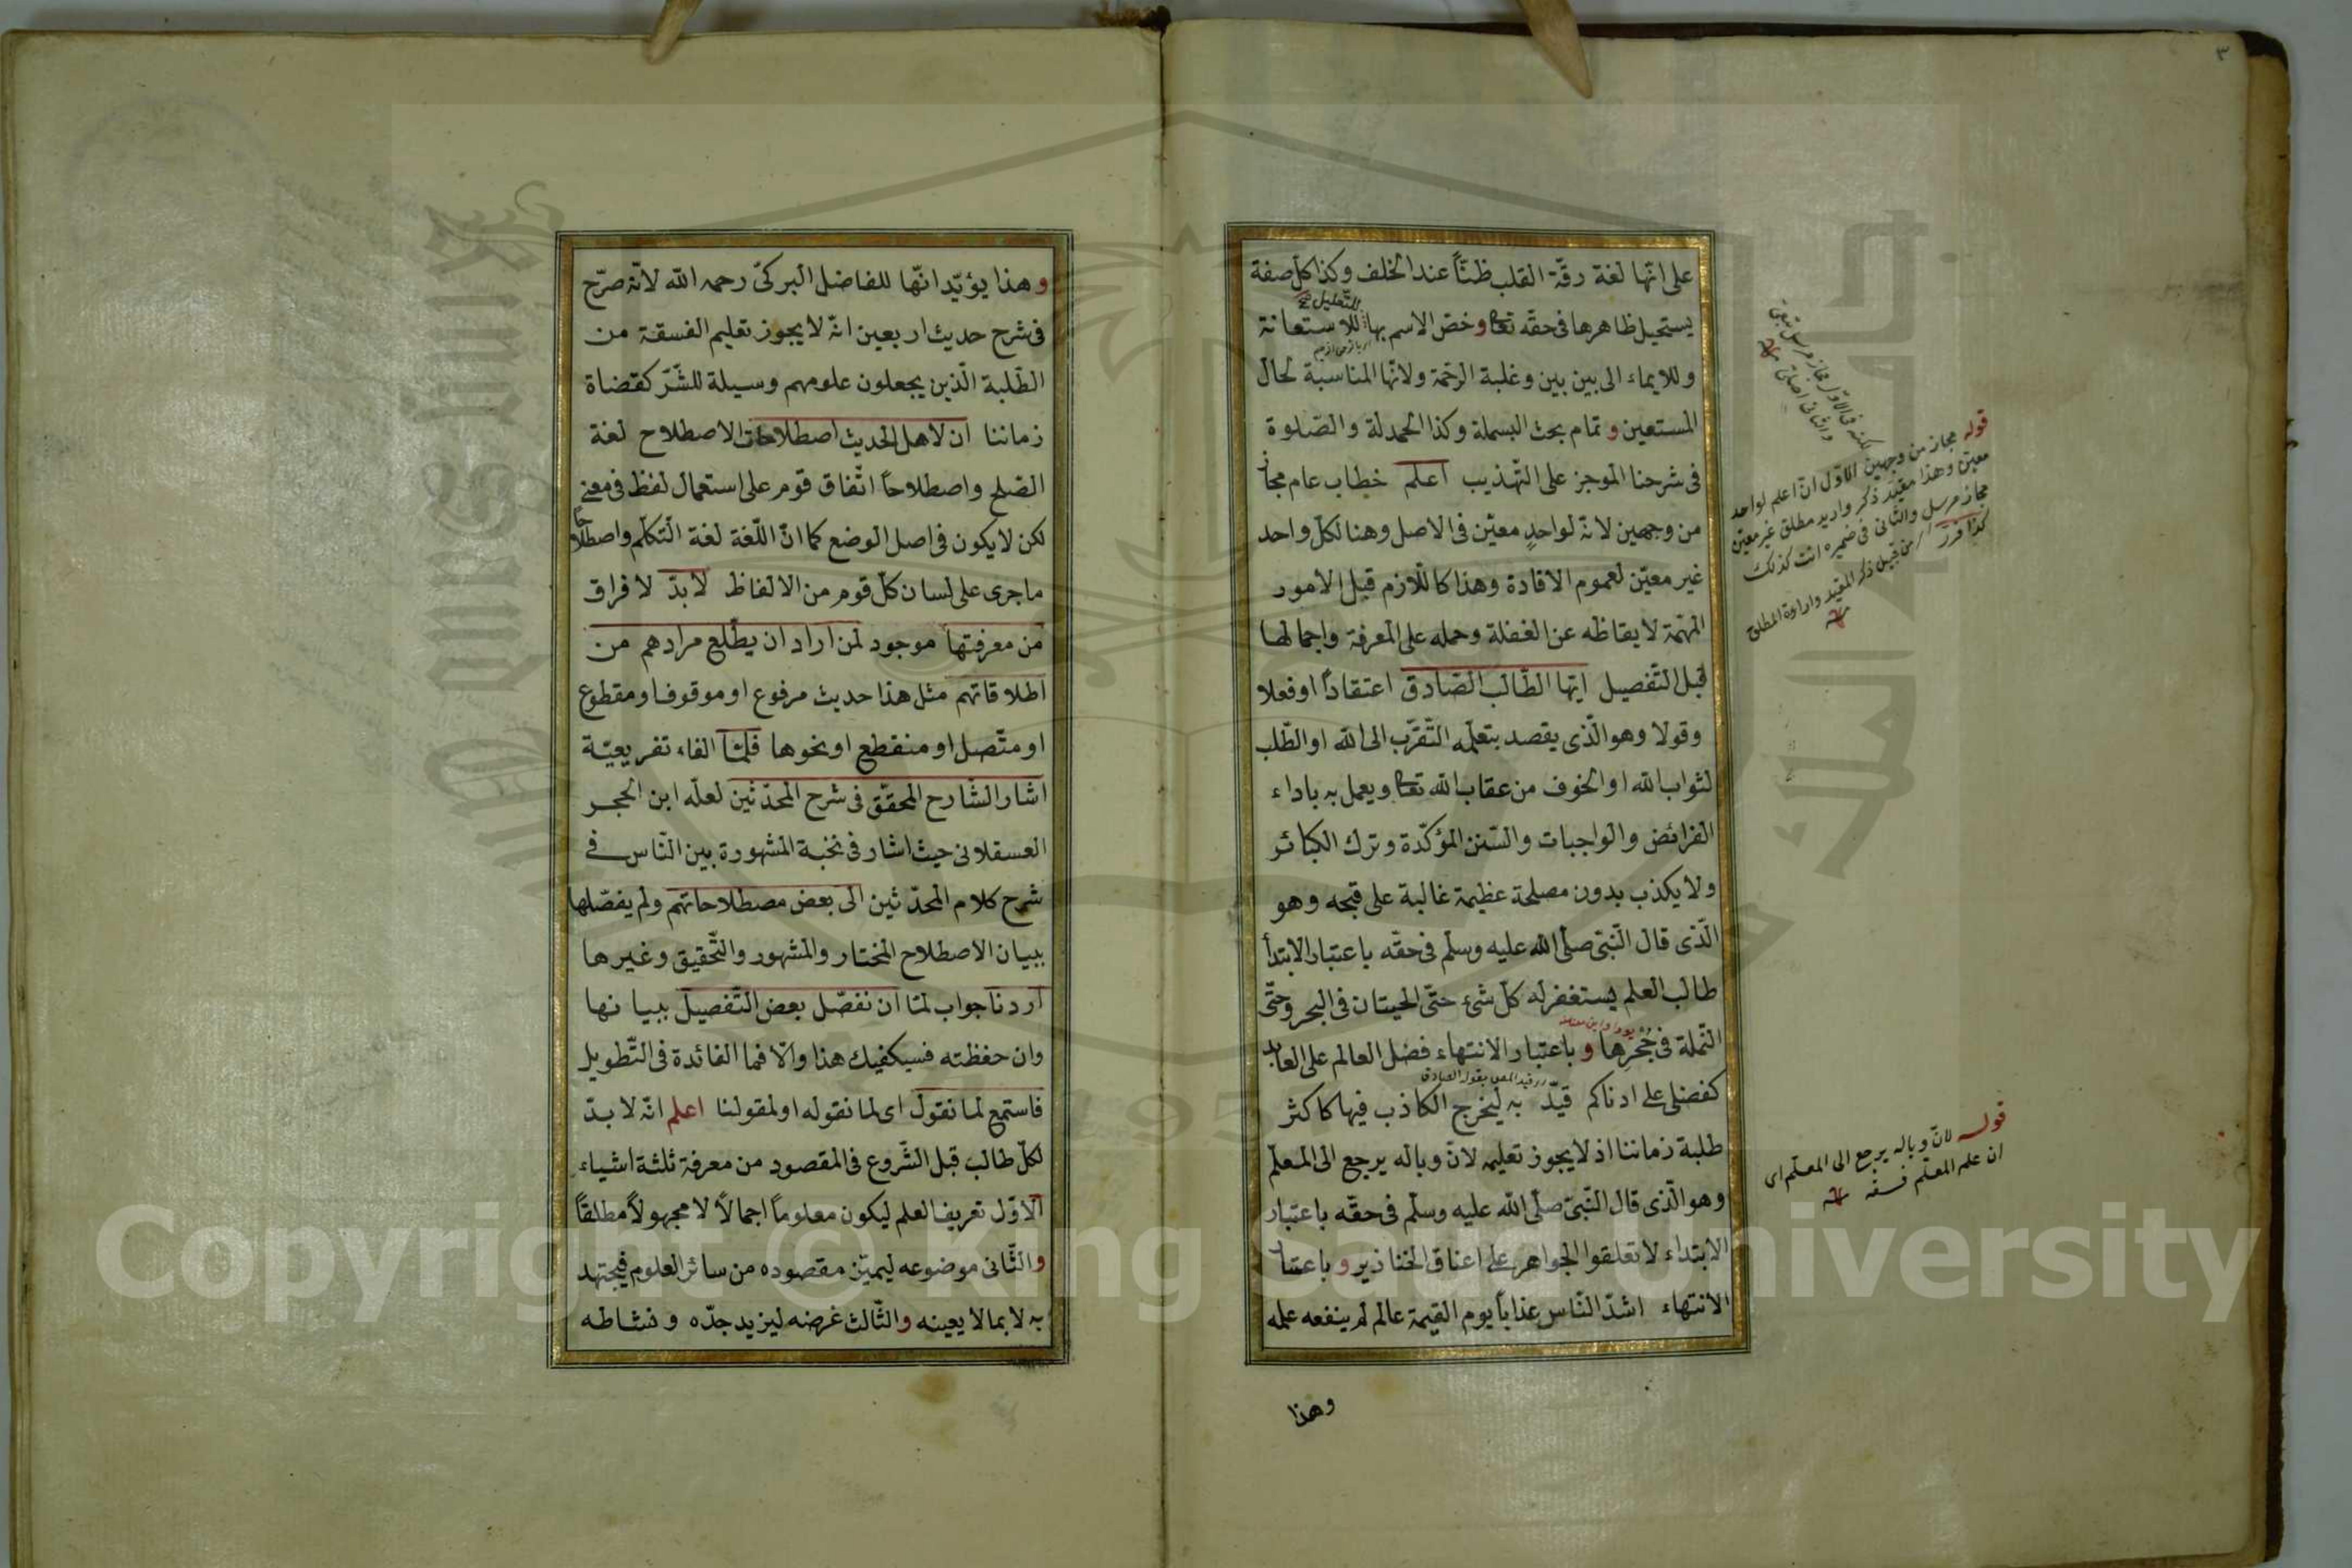 ٣
على انّها لغة رقّة القلب ظنّاً عند الخلف وكذا كلّ صفة
للتعليل
يستحيل ظاهرها فى حقّه تعا وخصّ الاسم بها للاستعانة
وللايماء الى بين بين وغلبة الرحمة ولانّها المناسبة لحال
المستعين و تمام بحث البسملة وكذا الحمدلة والصّلوة
فى شرحنا الموجز على التّهذيب اعلم خطاب عام مجاز
من وجهين لانّه لواحدٍ معيّن فى الاصل وهنا لكلّ واحد
غير معيّن لعموم الافادة وهذا كاللّازم قبل الامور
المهمّة لايقاظه عن الغفلة وحمله على المعرفة واجمالها
قبل التّفصيل ايّها الطّالب الصّادق اعتقاداً او فعلا
وقولا وهو الّذى يقصد بتعلّمه التّقرّب الى الله او الطّلب
لثواب الله او الخوف من عقاب الله تعا ويعمل به باداء
الفرائض والواجبات والسّنن المؤكّدة وترك الكبائر
ولا يكذب بدون مصلحة عظيمة غالبة على قبحه وهو
الّذى قال النّبىّ صلّى الله عليه وسلّم فى حقّه باعتبار الابتدأ
طالب العلم يستغفر له كلّ شئ حتّى الحيتان فى البحر وحتّى
النّملة فى جُحْرِها و باعتبار الانتهاء فضل العالم على العابد
قيد المص بقوله الصادق
كفضلى على ادناكم قيّد به ليخرج الكاذب فيها كاكثر
طلبة زماننا اذ لا يجوز تعليمه لانّ وباله يرجع الى المعلّم
وهو الّذى قال النّبىّ صلّى الله عليه وسلّم فى حقّه باعتبار
الابتداء لا تعلقوا الجواهر على اعناق الخنازير و باعتبار
الانتهاء اشدّ النّاس عذاباً يوم القيمة عالم لم ينفعه علمه
وهذا
قوله مجاز من وجهين الاوّل انّ اعلم لواحد
معيّن وهذا مقيّد ذكر واريد مطلق غير معيّن
مجاز مرسل والثّانى فى ضميره انت كذلك
من قبيل ذكر المقيّد وارادة المطلق
قوله لانّ وباله يرجع الى المعلّم اى
ان علم المعلّم فسقه
وهذا يؤيّد انّها للفاضل البركىّ رحمه الله لانّه صرّح
فى شرح حديث اربعين انّه لا يجوز تعليم الفسقة من
الطّلبة الّذين يجعلون علومهم وسيلة للشّرّ كقضاة
زماننا ان لاهل الحديث اصطلاحات الاصطلاح لغة
الصّلح واصطلاحاً اتّفاق قوم على استعمال لفظ فى معنى
لكن لا يكون فى اصل الوضع كما انّ اللّغة لغة التّكلّم واصطلاحاً
ما جرى على لسان كلّ قوم من الالفاظ لابدّ لا فراق
من معرفتها موجود لمن اراد ان يطّلع مرادهم من
اطلاقاتهم مثل هذا حديث مرفوع او موقوف او مقطوع
او متّصل او منقطع او نحوها فلمّا الفاء تفريعيّة
اشار الشّارح المحقّق فى شرح المحدّثين لعلّه ابن الحجر
العسقلانى حيث اشار فى نخبة المشهورة بين النّاس فى
شرح كلام المحدّثين الى بعض مصطلاحاتهم ولم يفصّلها
ببيان الاصطلاح المختار والمشهور والتّحقيق وغيرها
اردنا جواب لمّا ان نفصّل بعض التّفصيل ببيانها
وان حفظته فسيكفيك هذا والّا فما الفائدة فى التّطويل
فاستمع لما نقول اى لما نقوله او لمقولنا اعلم انّه لا بدّ
لكلّ طالب قبل الشّروع فى المقصود من معرفة ثلثة اشياء
الاوّل تعريف العلم ليكون معلوماً اجمالاً لا مجهولاً مطلقاً
والثّانى موضوعه ليميّز مقصوده من سائر العلوم فيجتهد
به لا بما لا يعينه والثّالث غرضه ليزيد جدّه ونشاطه
Copyright © King Saud University